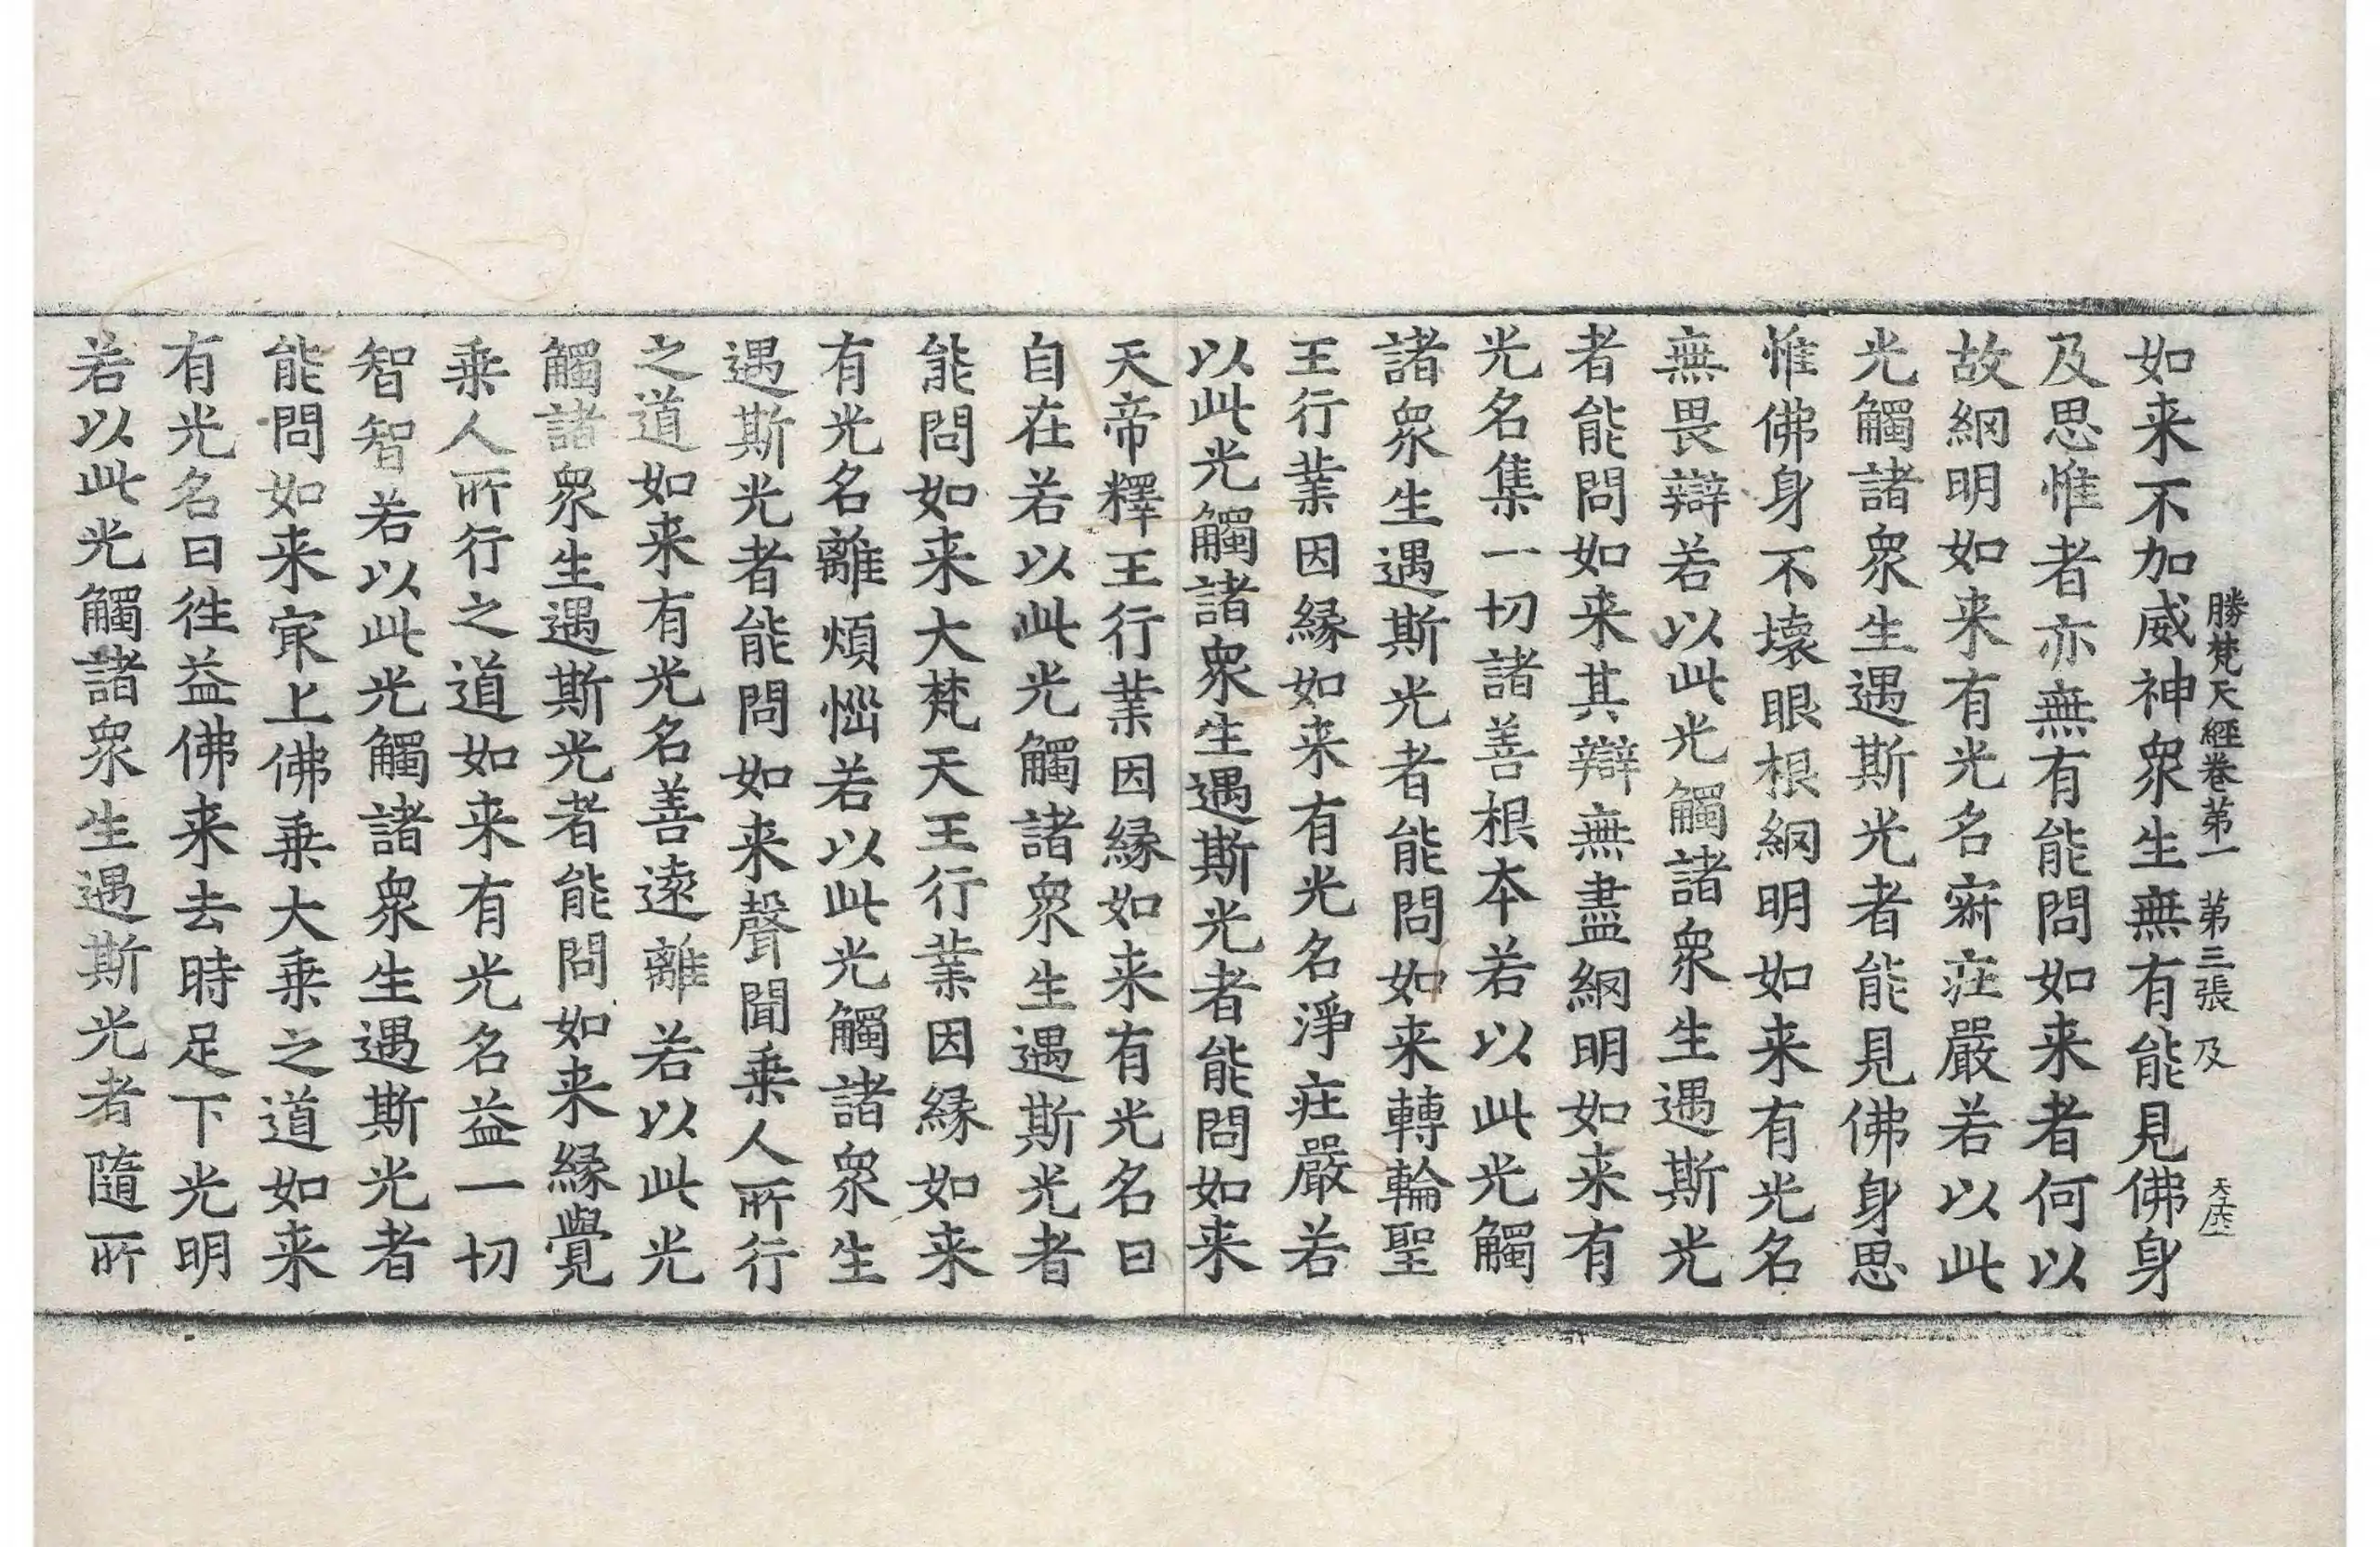 勝梵天經卷苐一 苐三張 及
如来不加威神衆生無有能見佛身
及思惟者亦無有能問如来者何以
故網明如来有光名寂庄嚴若以此
光觸諸衆生遇斯光者能見佛身思
惟佛身不壞眼根網明如来有光名
無畏辯若以此光觸諸衆生遇斯光
者能問如来其辯無盡網明如来有
光名集一切諸善根本若以此光觸
諸衆生遇斯光者能問如来轉輪聖
王行業因緣如来有光名淨庄嚴若
以此光觸諸衆生遇斯光者能問如来
天帝釋王行業因緣如来有光名曰
自在若以此光觸諸衆生遇斯光者
能問如来大梵天王行業因緣如来
有光名離煩惱若以此光觸諸衆生
遇斯光者能問如来聲聞乗人所行
之道如来有光名善遠離若以此光
觸諸衆生遇斯光者能問如来緣覺
乗人所行之道如来有光名益一切
智智若以此光觸諸衆生遇斯光者
能問如来冣上佛乗大乗之道如来
有光名曰往益佛来去時足下光明
若以此光觸諸衆生遇斯光者隨所